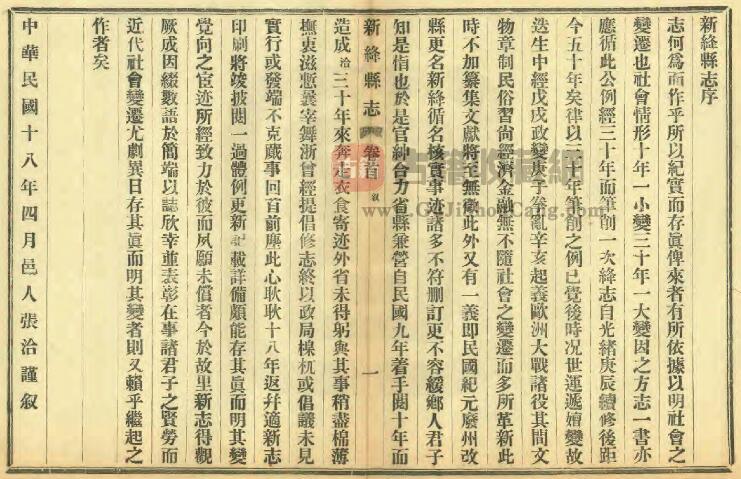 新絳縣志序
志何爲而作乎所以紀實而存眞俾來者有所依據以明社會之
變遷也社會情形十年一小變三十年一大變因之方志一書亦
應循此公例經三十年而筆削一次絳志自光緒庚辰續修後距
今五十年矣律以三十年筆削之例已覺後時况世運遞嬗變故
迭生中經戊戌政變庚子拳亂辛亥起義歐洲大戰諸役其間文
物章制民俗習尙經濟金融無不隨社會之變遷而多所革新此
時不加纂集文獻將至無徵此外又有一義即民國紀元廢州改
縣更名新絳循名核實事迹諸多不符刪訂更不容緩鄉人君子
知是惜也於是官紳合力省縣兼營自民國九年着手閱十年而
新絳縣志 卷首 叙 一
造成洽三十年來奔走衣食寄迹外省未得躬與其事稍盡棉薄
撫衷滋慙曩宰舞浙曾經提倡修志終以政局杌或倡議未見
實行或發端不克蕆事回首前塵此心耿耿十八年返幷適新志
印刷將竣披閱一過體例更新記載詳備頗能存其眞而明其變
覺向之宦迹所經致力於彼而夙願未償者今於故里新志得觀
厥成因綴數語於簡端以誌欣幸並表彰在事諸君子之賢勞而
近代社會變遷尤劇異日存其眞而明其變者則又賴乎繼起之
作者矣
中華民國十八年四月邑人張洽謹叙
古籍收藏網